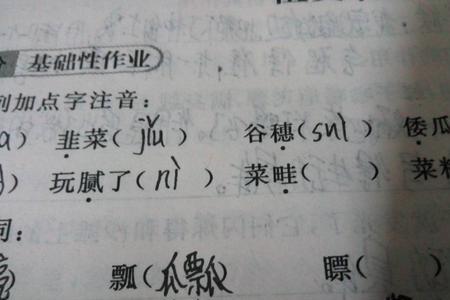 基础性作业
列加点字注音：
a） 韭菜（jiǔ） 谷穗（suì） 倭瓜
） 玩腻了（nì） 菜畦（ ） 菜
词：
瓢（瓜瓢） 瞟（ ）